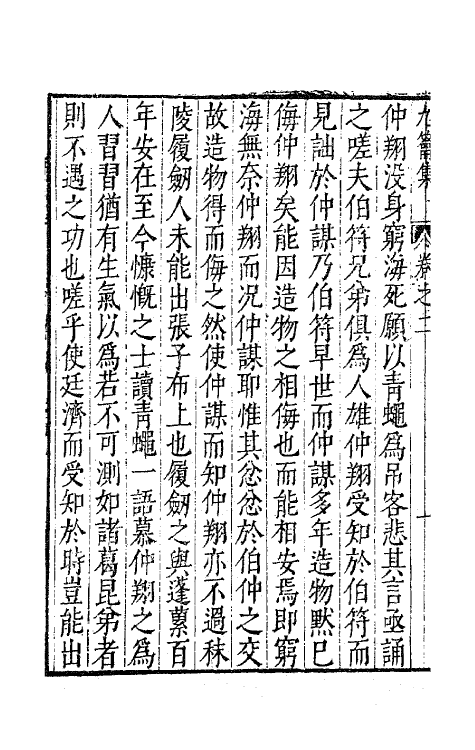 九籥集
卷之二
十
仲翔没身窮海死願以青蠅爲吊客悲其言亟誦
之嗟夫伯符兄弟俱爲人雄仲翔受知於伯符而
見詘於仲謀乃伯符早世而仲謀多年造物黙已
侮仲翔矣能因造物之相侮也而能相安焉即窮
海無奈仲翔而况仲謀耶惟其忿忿於伯仲之交
故造物得而侮之然使仲謀而知仲翔亦不過秣
陵履劒人未能出張子布上也履劒之與蓬蔂百
年安在至今慷慨之士讀青蠅一語慕仲翔之爲
人習習猶有生氣以爲若不可測如諸葛昆弟者
則不遇之功也嗟乎使廷濟而受知於時豈能出